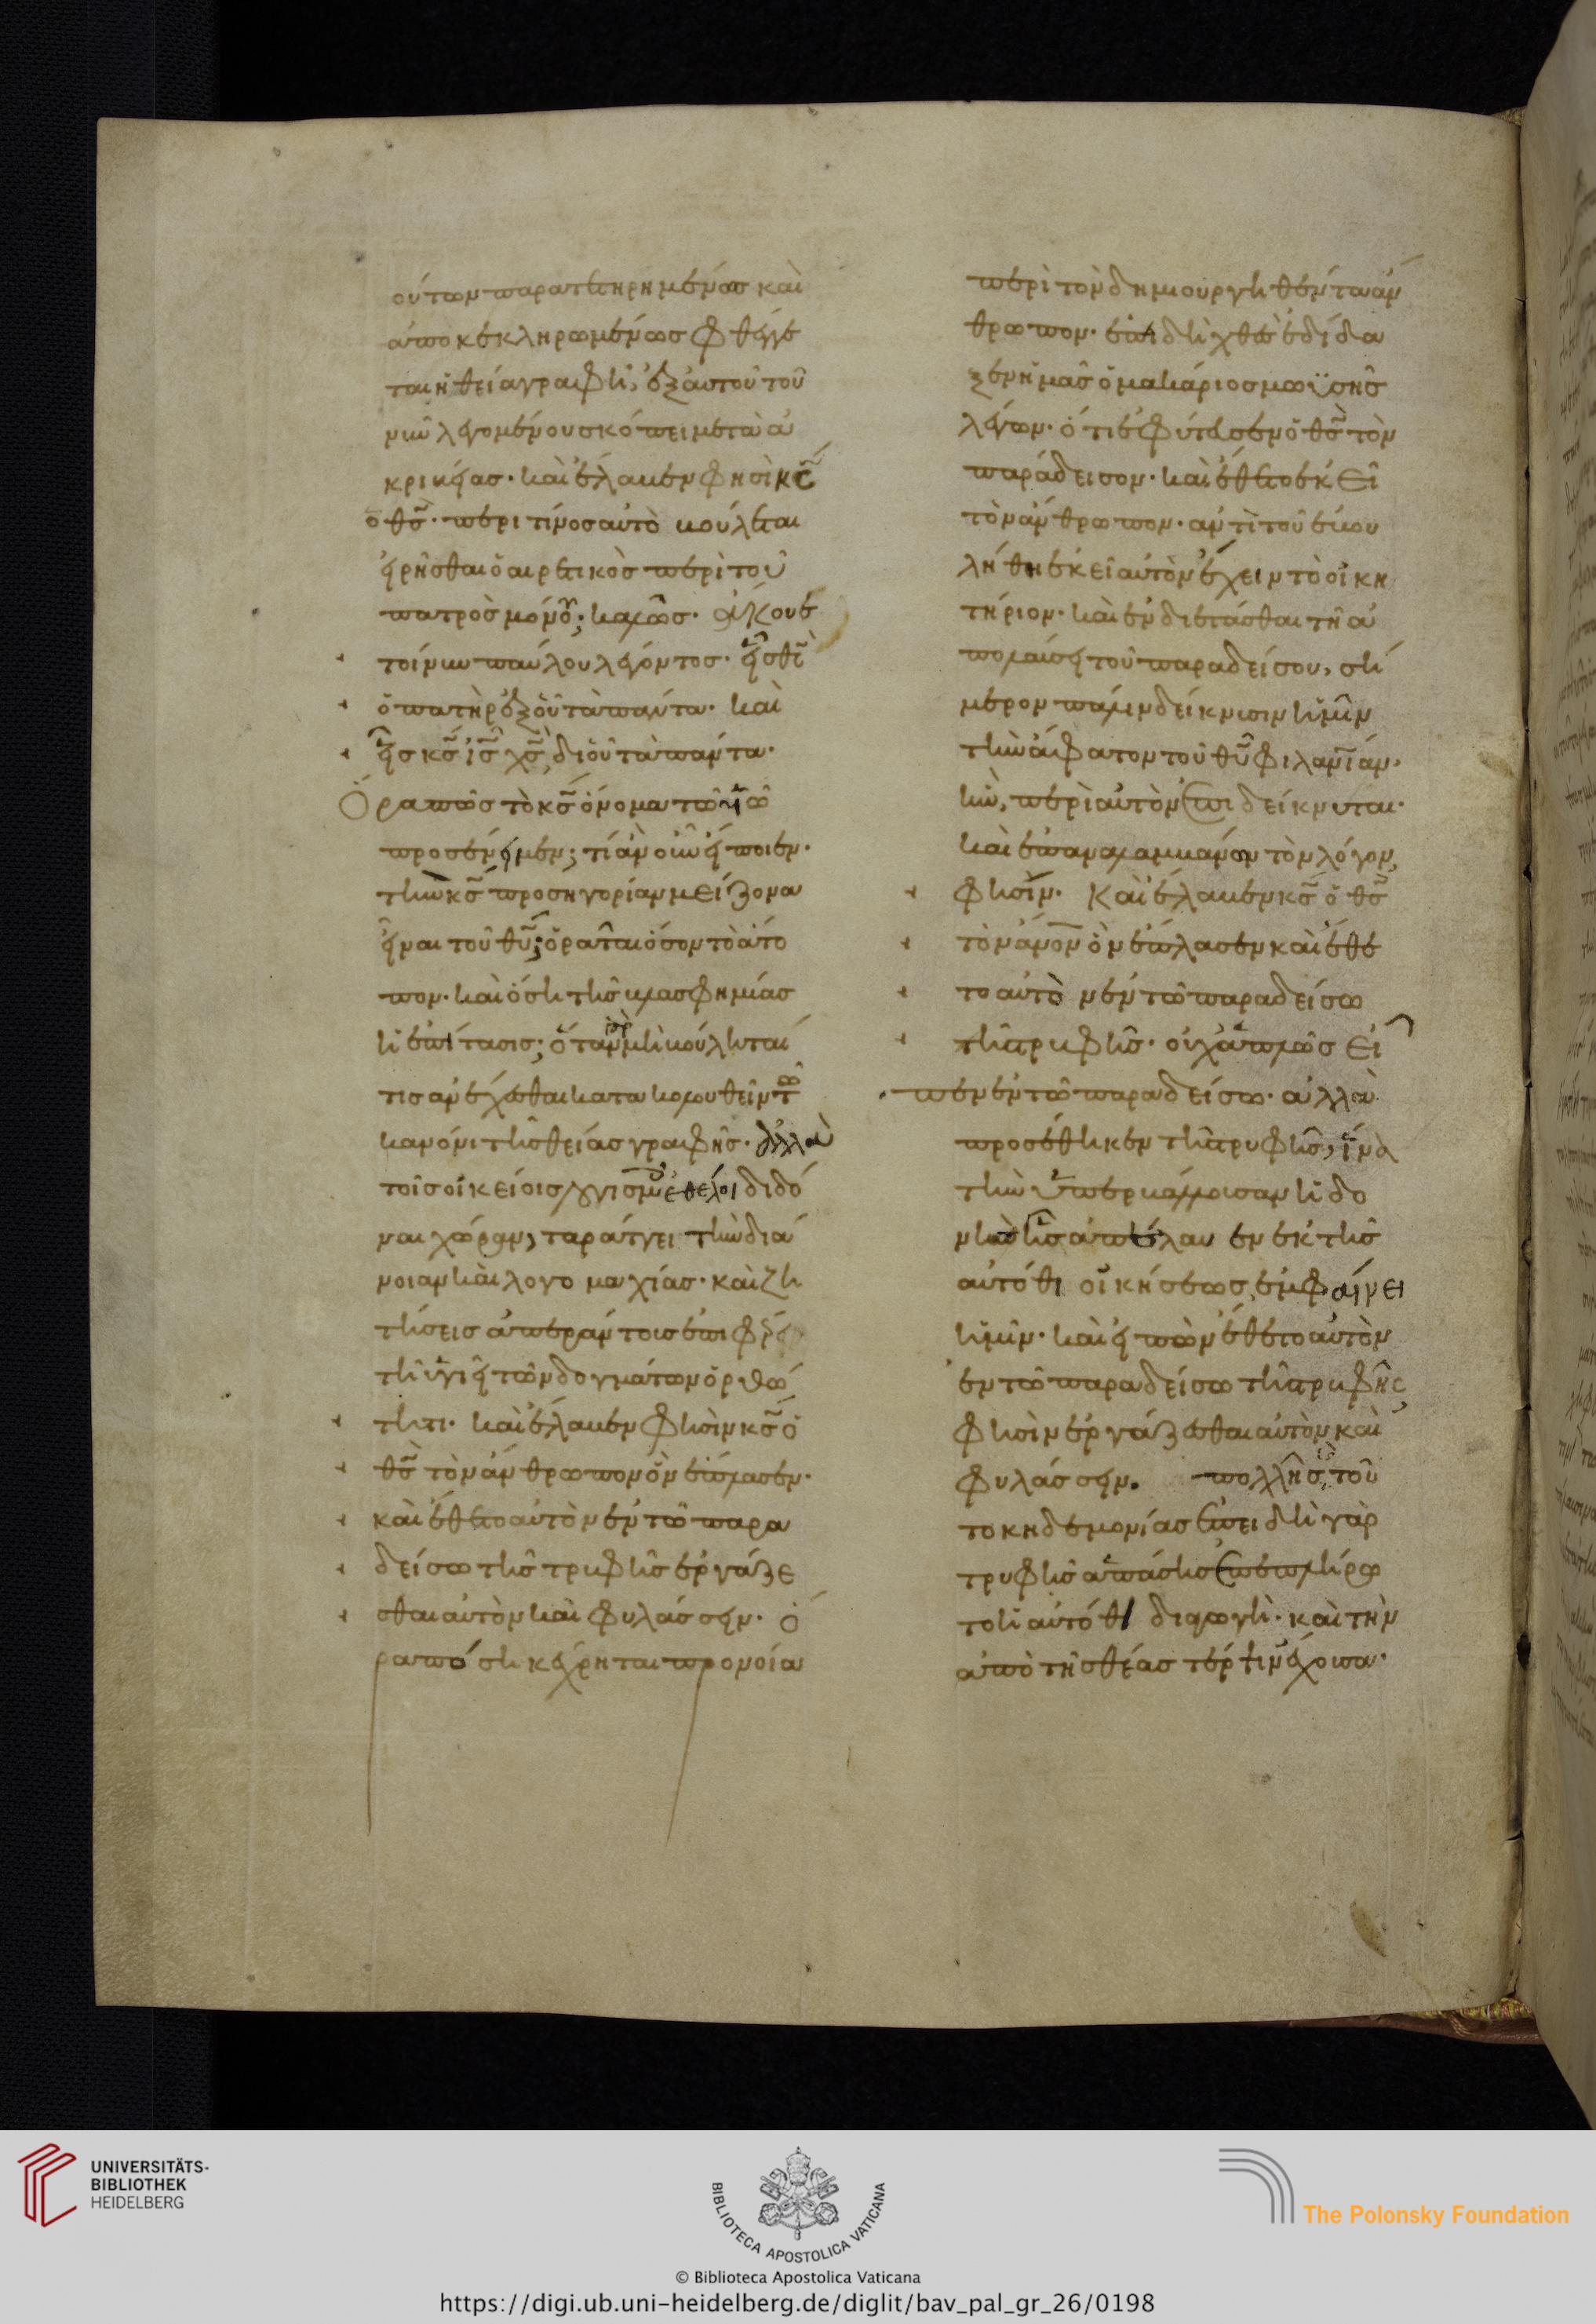 ούτων παρατετηρημένως καὶ
ἀποκεκληρωμένως φθέγγε
ται ἡ θεία γραφὴ, ἐξ αὐτοῦ τοῦ
νῦν λεγομένου σκόπει μετὰ ἀ
κριβείας· καὶ ἔλαβεν φησὶ κς
ὁ θς· περι τίνος αὐτὸ βούλεται
εἰρῆσθαι ὁ αἱρετικὸς περὶ τοῦ
πατρὸς μόνου; καλῶς· ἄκουε
τοίνυν παύλου λέγοντος· εἷς θς
ὁ πατὴρ ἐξ οὗ τὰ πάντα· καὶ
εἷς κς ις χς, δι οὗ τὰ πάντα·
Ὅρα πῶς τὸ κς ὄνομα τῶ υἱῶ
προσένειμεν; τί ἂν οὖν εἴποιεν·
τὴν κς προσηγορίαν μείζονα
εἶναι τοῦ θυ; ὁρᾶται ὅσον τὸ ἄτο
πον· καὶ ὅση τῆς βλασφημίας
ἡ ἐπίτασις; ὅταν γὰρ μὴ βούληταί
τις ἀνέχεσθαι κατακολουθεῖν τῶ
κανόνι τῆς θείας γραφῆς· ἀλλὰ
τοῖς οἰκείοις λογισμοῖς ἐθέλοι διδό
ναι χώραν, ταράττει τὴν διά
νοιαν καὶ λογομαχίας· καὶ ζη
τήσεις ἀπεράντοις ἐπιφέρει
τῆ ὑγιεῖ τῶν δογμάτων ὀρθό
τητι· καὶ ἔλαβεν φησὶν κς ὁ
θς τὸν ἄνθρωπον ὃν ἔπλασεν·
καὶ ἔθετο αὐτὸν ἐν τῶ παρα
δείσω τῆς τρυφῆς ἐργάζε
σθαι αὐτὸν καὶ φυλάσσειν· ὅ
ρα πόση κέχρηται προνοία
περὶ τὸν δημιουργηθέντα ἄν
θρωπον· ἐπειδὴ χθὲς ἐδίδα
ξεν ἡμᾶς ὁ μακάριος μωϋσῆς
λέγων· ὅτι ἐφύτευσεν ὁ θς τὸν
παράδεισον· καὶ ἔθετο ἐκεῖ
τὸν ἄνθρωπον· ἀντὶ τοῦ ἐβου
λήθη ἐκεῖ αὐτὸν ἔχειν τὸ οἰκη
τήριον· καὶ ἐνδιαιτᾶσθαι τῆ ἀ
πολαύσει τοῦ παραδείσου, σή
μερον πάλιν δείκνυσιν ἡμῖν
τὴν ἄφατον τοῦ θυ φιλανίαν·
ἣν, περὶ αὐτὸν ἐπιδείκνυται·
καὶ ἐπαναλαμβάνων τὸν λόγον,
φησὶν· Καὶ ἔλαβεν κς ὁ θς
τὸν ἄνον ὃν ἔπλασεν καὶ ἔθε
το αὐτὸν ἐν τῶ παραδείσω
τῆς τρυφῆς· οὐχ ἁπλῶς εἶ
πεν ἐν τῶ παραδείσω· ἀλλὰ
προσέθηκεν τῆς τρυφῆς, ἵνα
τὴν ὑπερβάλλουσαν ἡδο
νὴν ἧς ἀπέλαυεν ἐκ τῆς
αὐτόθι οἰκήσεως, ἐμφαίνει
ἡμῖν· καὶ εἰπὼν ἔθετο αὐτὸν
ἐν τῶ παραδείσω τῆς τρυφῆς,
φησὶν ἐργάζεσθαι αὐτὸν καὶ
φυλάσσειν. πολλῆς τοῦ
το κηδεμονίας ἐπειδὴ γὰρ
τρυφῆς ἁπάσης ἐπεπλήρω
το ἡ αὐτόθι διαγωγὴ· καὶ τὴν
ἀπὸ τῆς θέας τέρψιν ἔχουσα·
UNIVERSITÄTS-
BIBLIOTHEK
HEIDELBERG
BIBLIOTECA APOSTOLICA VATICANA
The Polonsky Foundation
© Biblioteca Apostolica Vaticana
https://digi.ub.uni-heidelberg.de/diglit/bav_pal_gr_26/0198